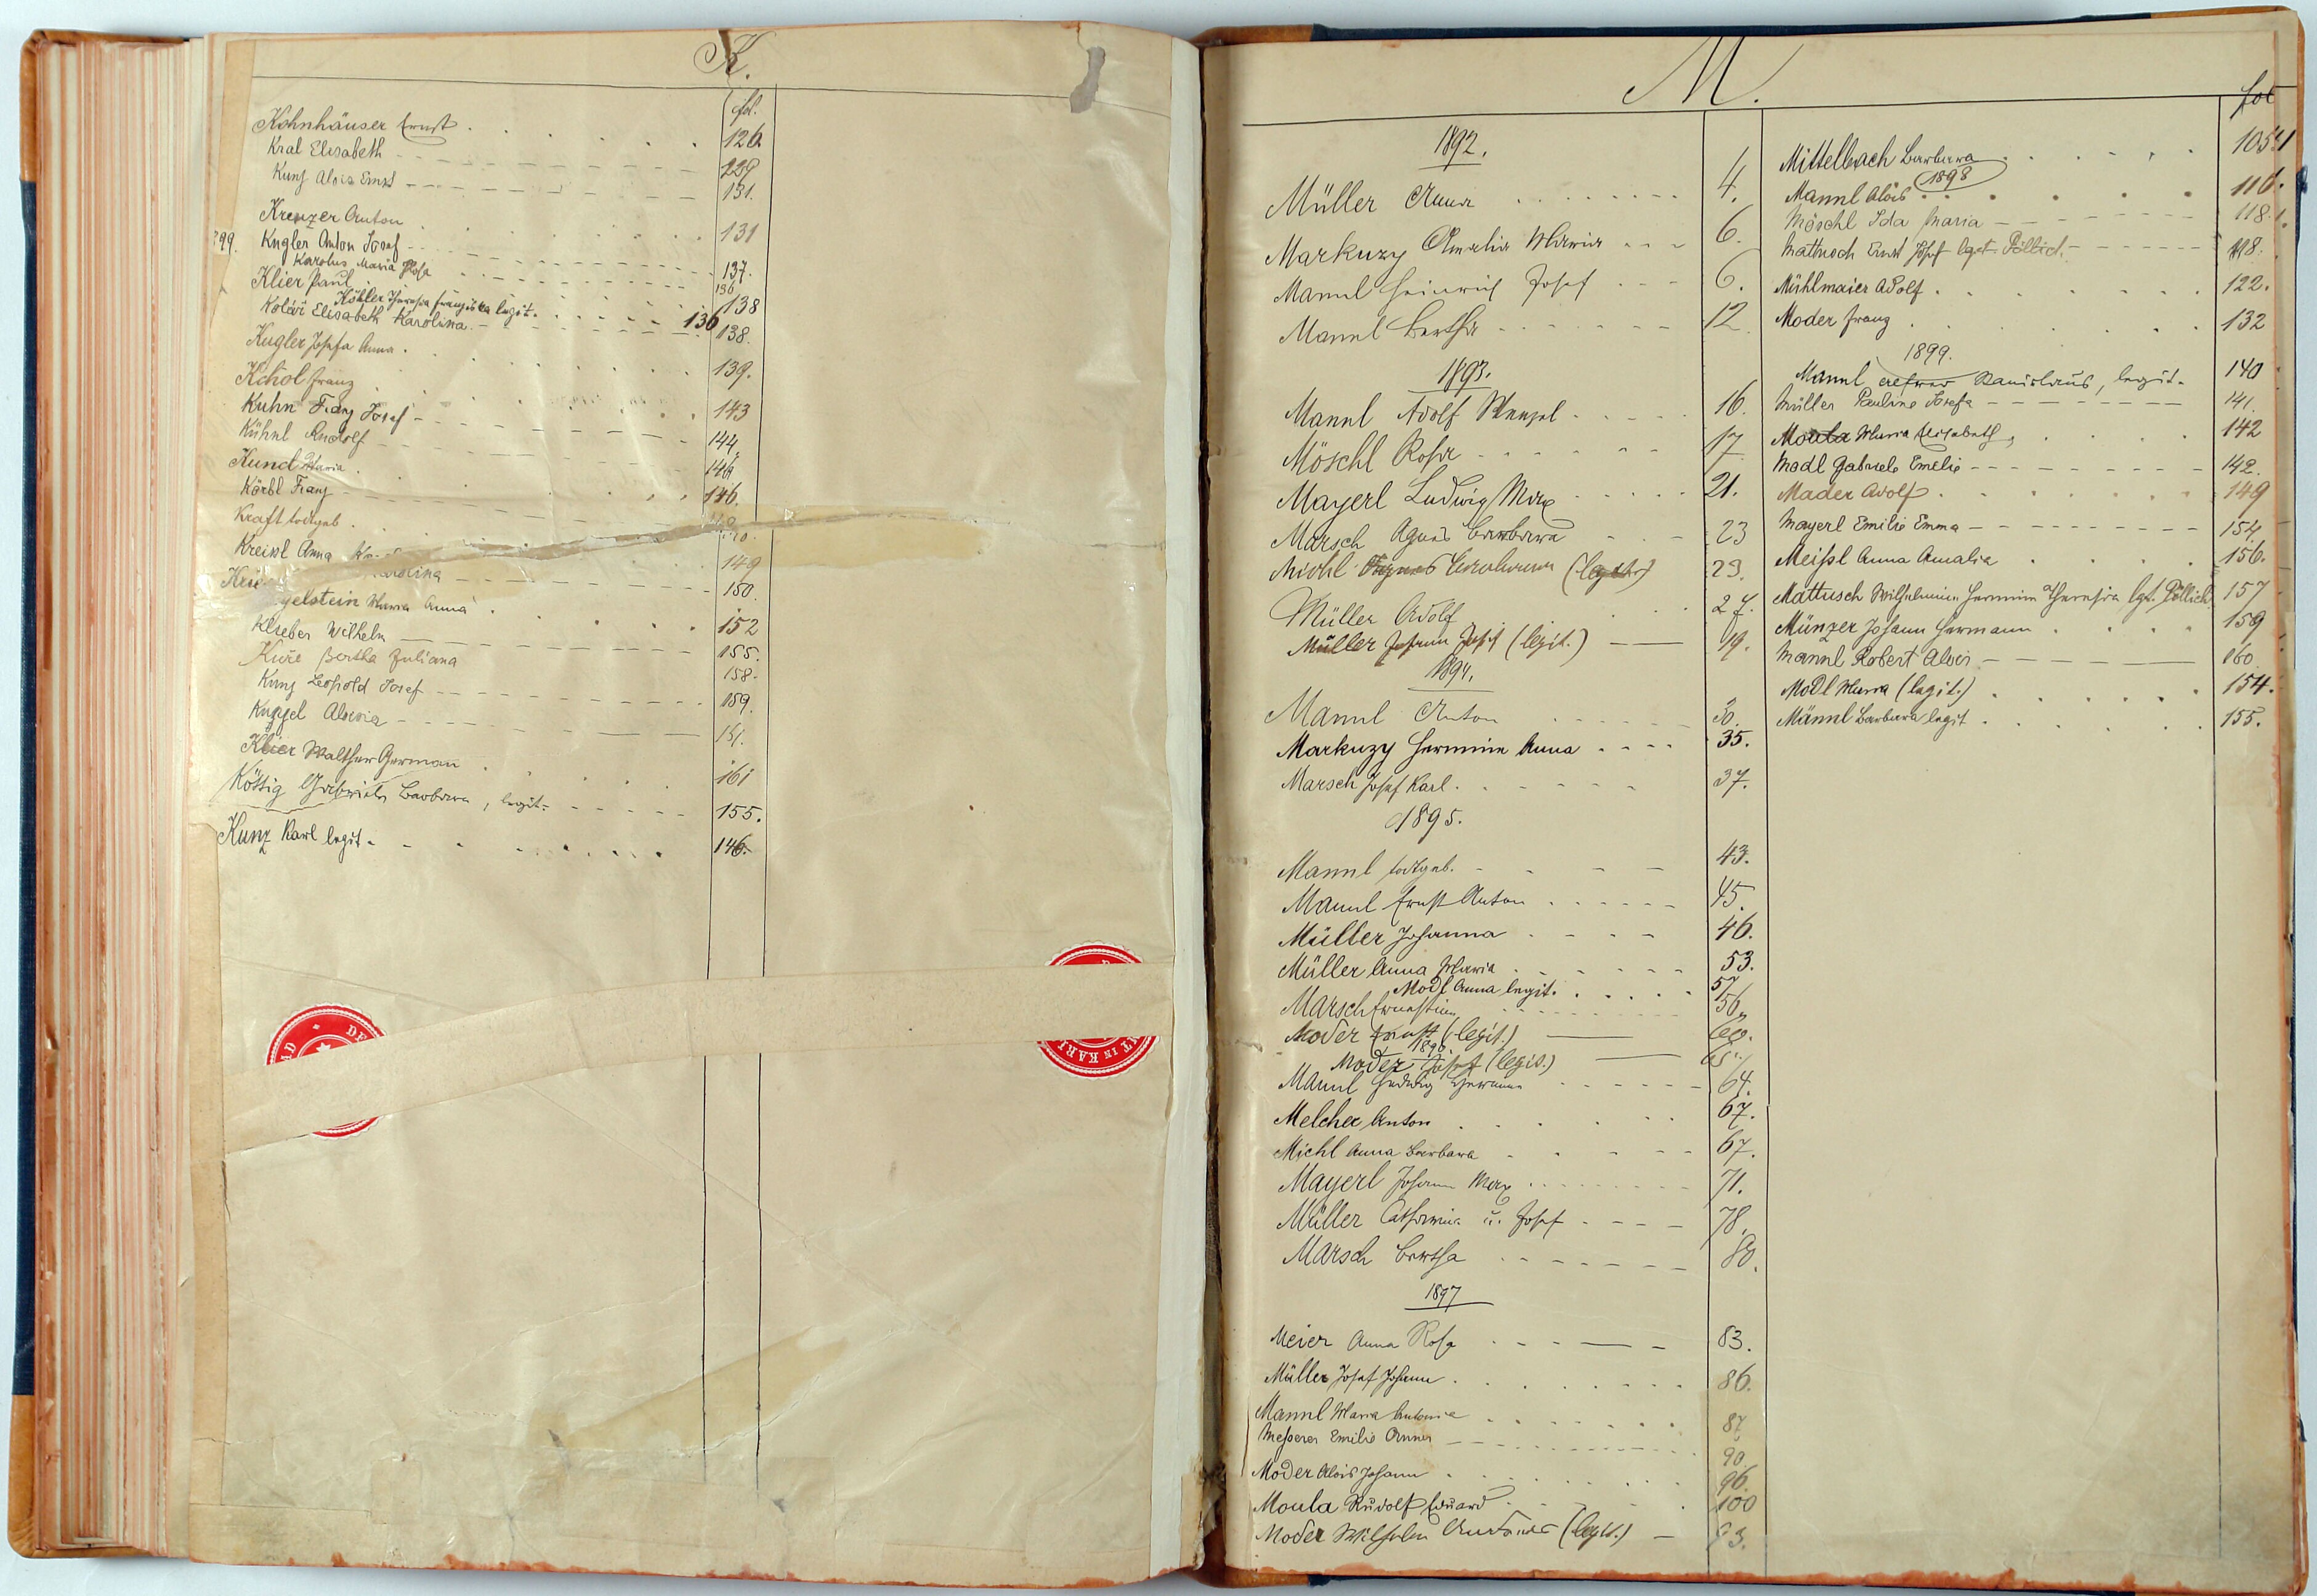 K.
fol.
Kohnhäuser Ernst 126.
Kral Elisabeth 229
Kunz Alois Ernst 131.
Kreuzer Anton 131
99. Kugler Anton Josef 137.
Karolus Maria Rosa 136
Klier Paul 138
Köhler Theresia Franziska legit. 136
Kolář Elisabeth Karolina 138.
Kugler Josefa Anna 139.
Kchol Franz 143
Kuhn Franz Josef 144.
Kühnl Rudolf 146
Kund Maria 146.
Körbl Franz
Kraft todtgeb. 149
Kreissl Anna Karolina 150.
gelstein Maria Anna 152
Kleeber Wilhelm 155.
Kuře Bertha Juliana 158.
Kunz Leopold Josef 159.
Kuppel Aloisia 161.
Klier Walther German 161
Kössig Gabriele Barbara, legit. 155.
Kunz Karl legit. 146.
DE
IT IN KARL
M.
1892.
Müller Anna 4.
Markuzy Amalia Maria 6.
Mannl Heinrich Josef 6.
Mannl Bertha 12.
1893.
Mannl Adolf Wenzel 16.
Möschl Rosa 17
Mayerl Ludwig Max 21.
Marsch Agnes Barbara 23
Michl Agnes (legit.) 23.
Müller Adolf 27.
Müller Johann Josef (legit.) 19.
1894.
Mannl Anton 30.
Markuzy Hermine Anna 35.
Marsch Josef Karl 37.
1895.
Mannl todtgeb. 43.
Mannl Ernst Anton 45.
Müller Johanna 46.
Müller Anna Maria 53.
Modl Anna legit. 57
Marsch Ernestine 56.
Moder Ernst (legit.) 60.
1896.
Moder Josef (legit.) 65.
Mannl Hedwig Hermine 64.
Melcher Anton 67.
Michl Anna Barbara 67.
Mayerl Johann Max 71.
Müller Catharina u. Josef 78.
Marsch Bertha 80.
1897
Meier Anna Rosa 83.
Müller Josef Johann 86.
Mannl Maria Antonie 87.
Messerer Emilie Anna 90.
Moder Alois Johann 96.
Moula Rudolf Eduard 100
Moder Wilhelm (legit.) 93.
fol
Mittelbach Barbara 105
1898
Mannl Alois 116.
Möschl Ida Maria 118.
Mattusch Ernst Josef legit. Pöllich. 118.
Mühlmaier Adolf 122.
Moder Franz 132
1899.
Mannl Alfred Stanislaus, legit. 140
Müller Pauline Josefa 141.
Moula Maria Elisabeth 142
Modl Gabriele Emelie 142.
Mader Adolf 149
Mayerl Emilie Emma 154.
Meißl Anna Amalia 156.
Mattusch Wilhelmine Hermine Theresia lgt. Pöllich 157
Münzer Johann Hermann 159
Mannl Robert Alois 160.
Modl Maria (legit.) 154.
Männl Barbara legit. 155.